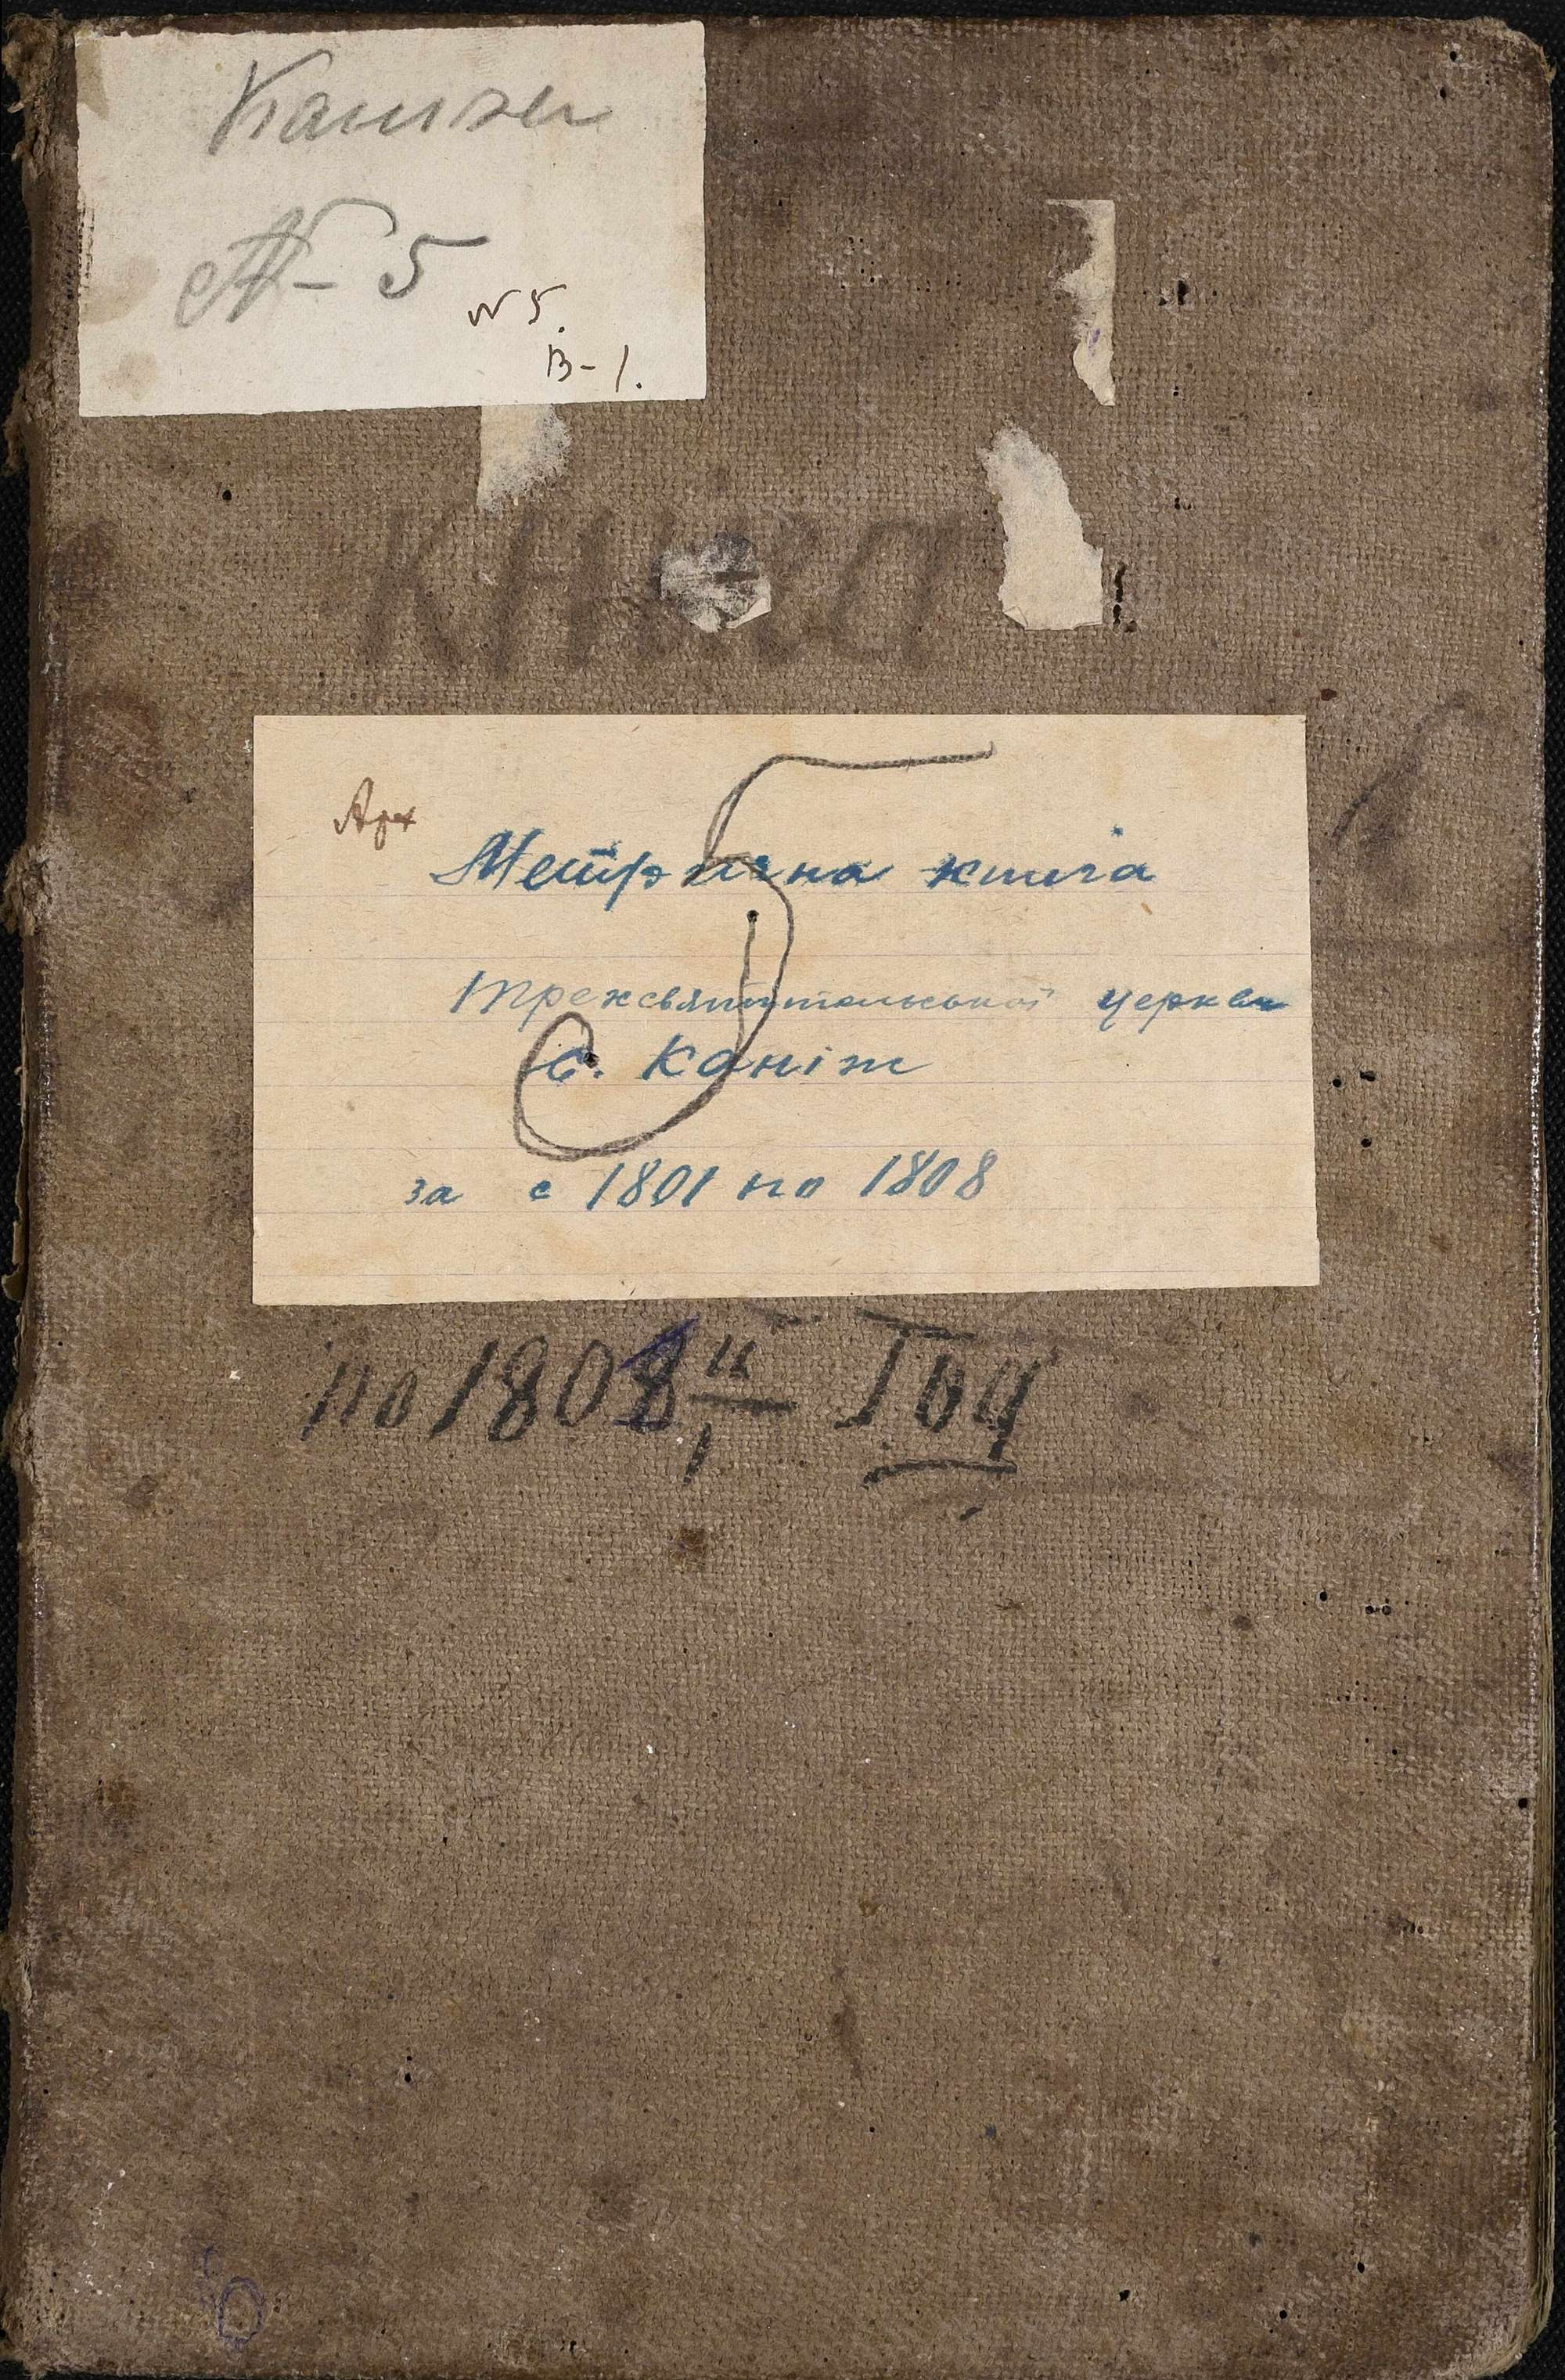 № 5
N 5.
В-1.
КНИГА
Арх
5
Метрична книга
трехсвятительської церкви
с. Каніж
за с 1801 по 1808
по 1808й Год